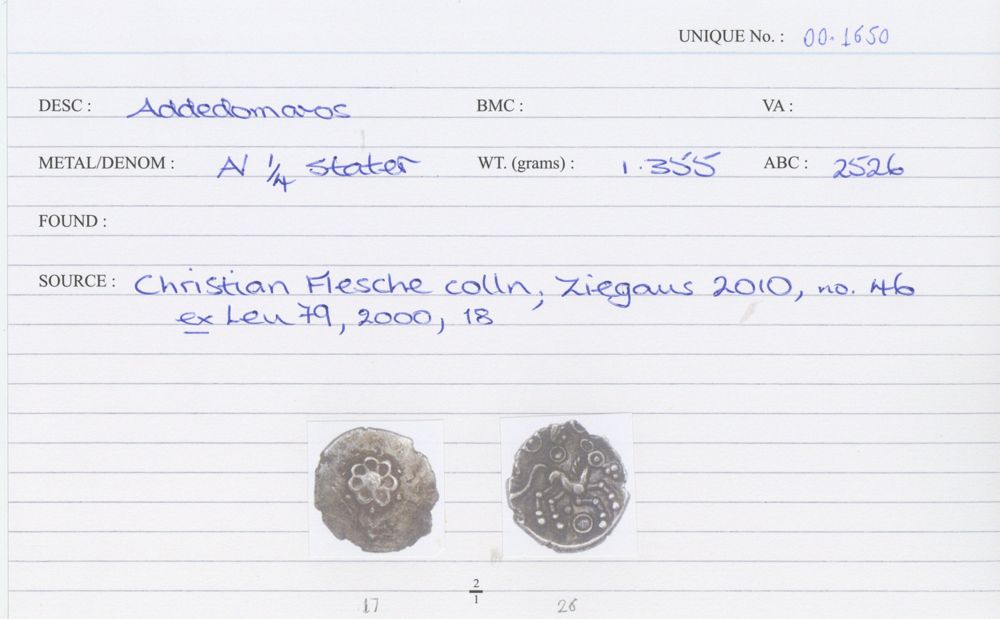 UNIQUE No. : 00.1650
DESC : Addedomaros BMC : VA :
METAL/DENOM : AV 1/4 stater WT. (grams) : 1.355 ABC : 2526
FOUND :
SOURCE : Christian Flesche colln, Ziegaus 2010, no. 46
ex Leu 79, 2000, 18
2/1
17 26